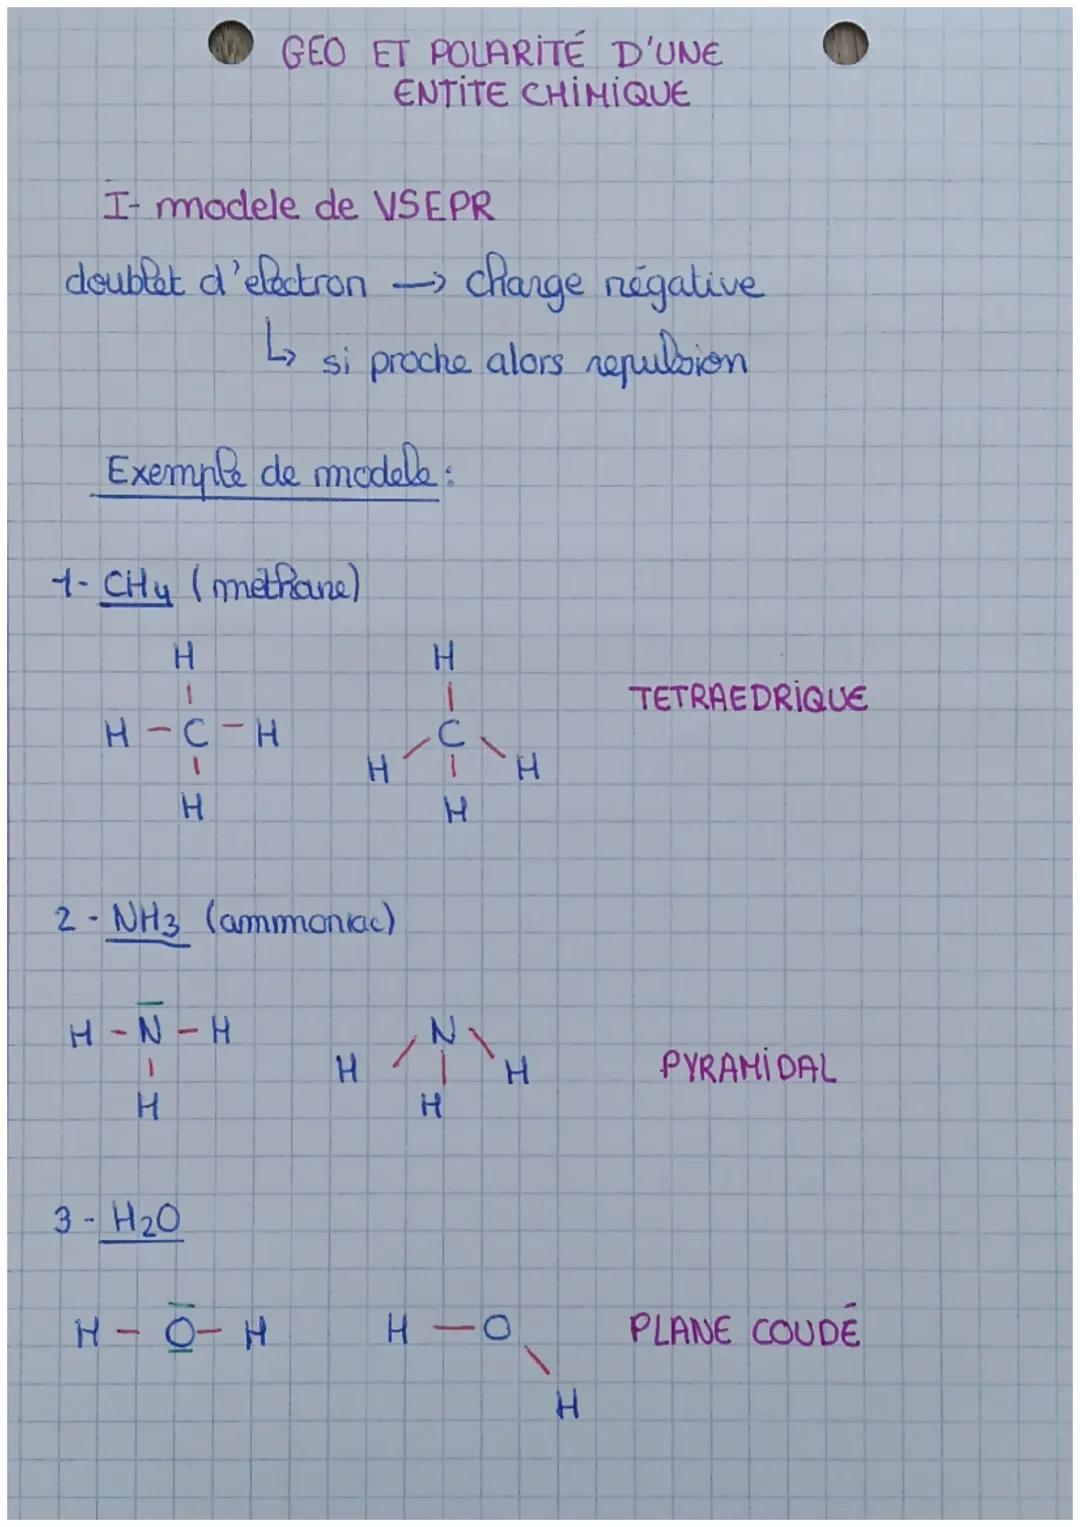 GEO ET POLARITÉ D'UNE
ENTITE CHIMIQUE
I- modele de VSEPR
doublet d'electron → charge négative
↳ si proche alors repulsion
Exemple de modele :
1- CH4 (methane)
H H
TETRAEDRIQUE
H - C - H C
H H
H H
2 - NH3 (ammoniac)
H - N - H N
H H PYRAMIDAL
H H
3 - H2O
H - O - H H - O PLANE COUDÉ
H